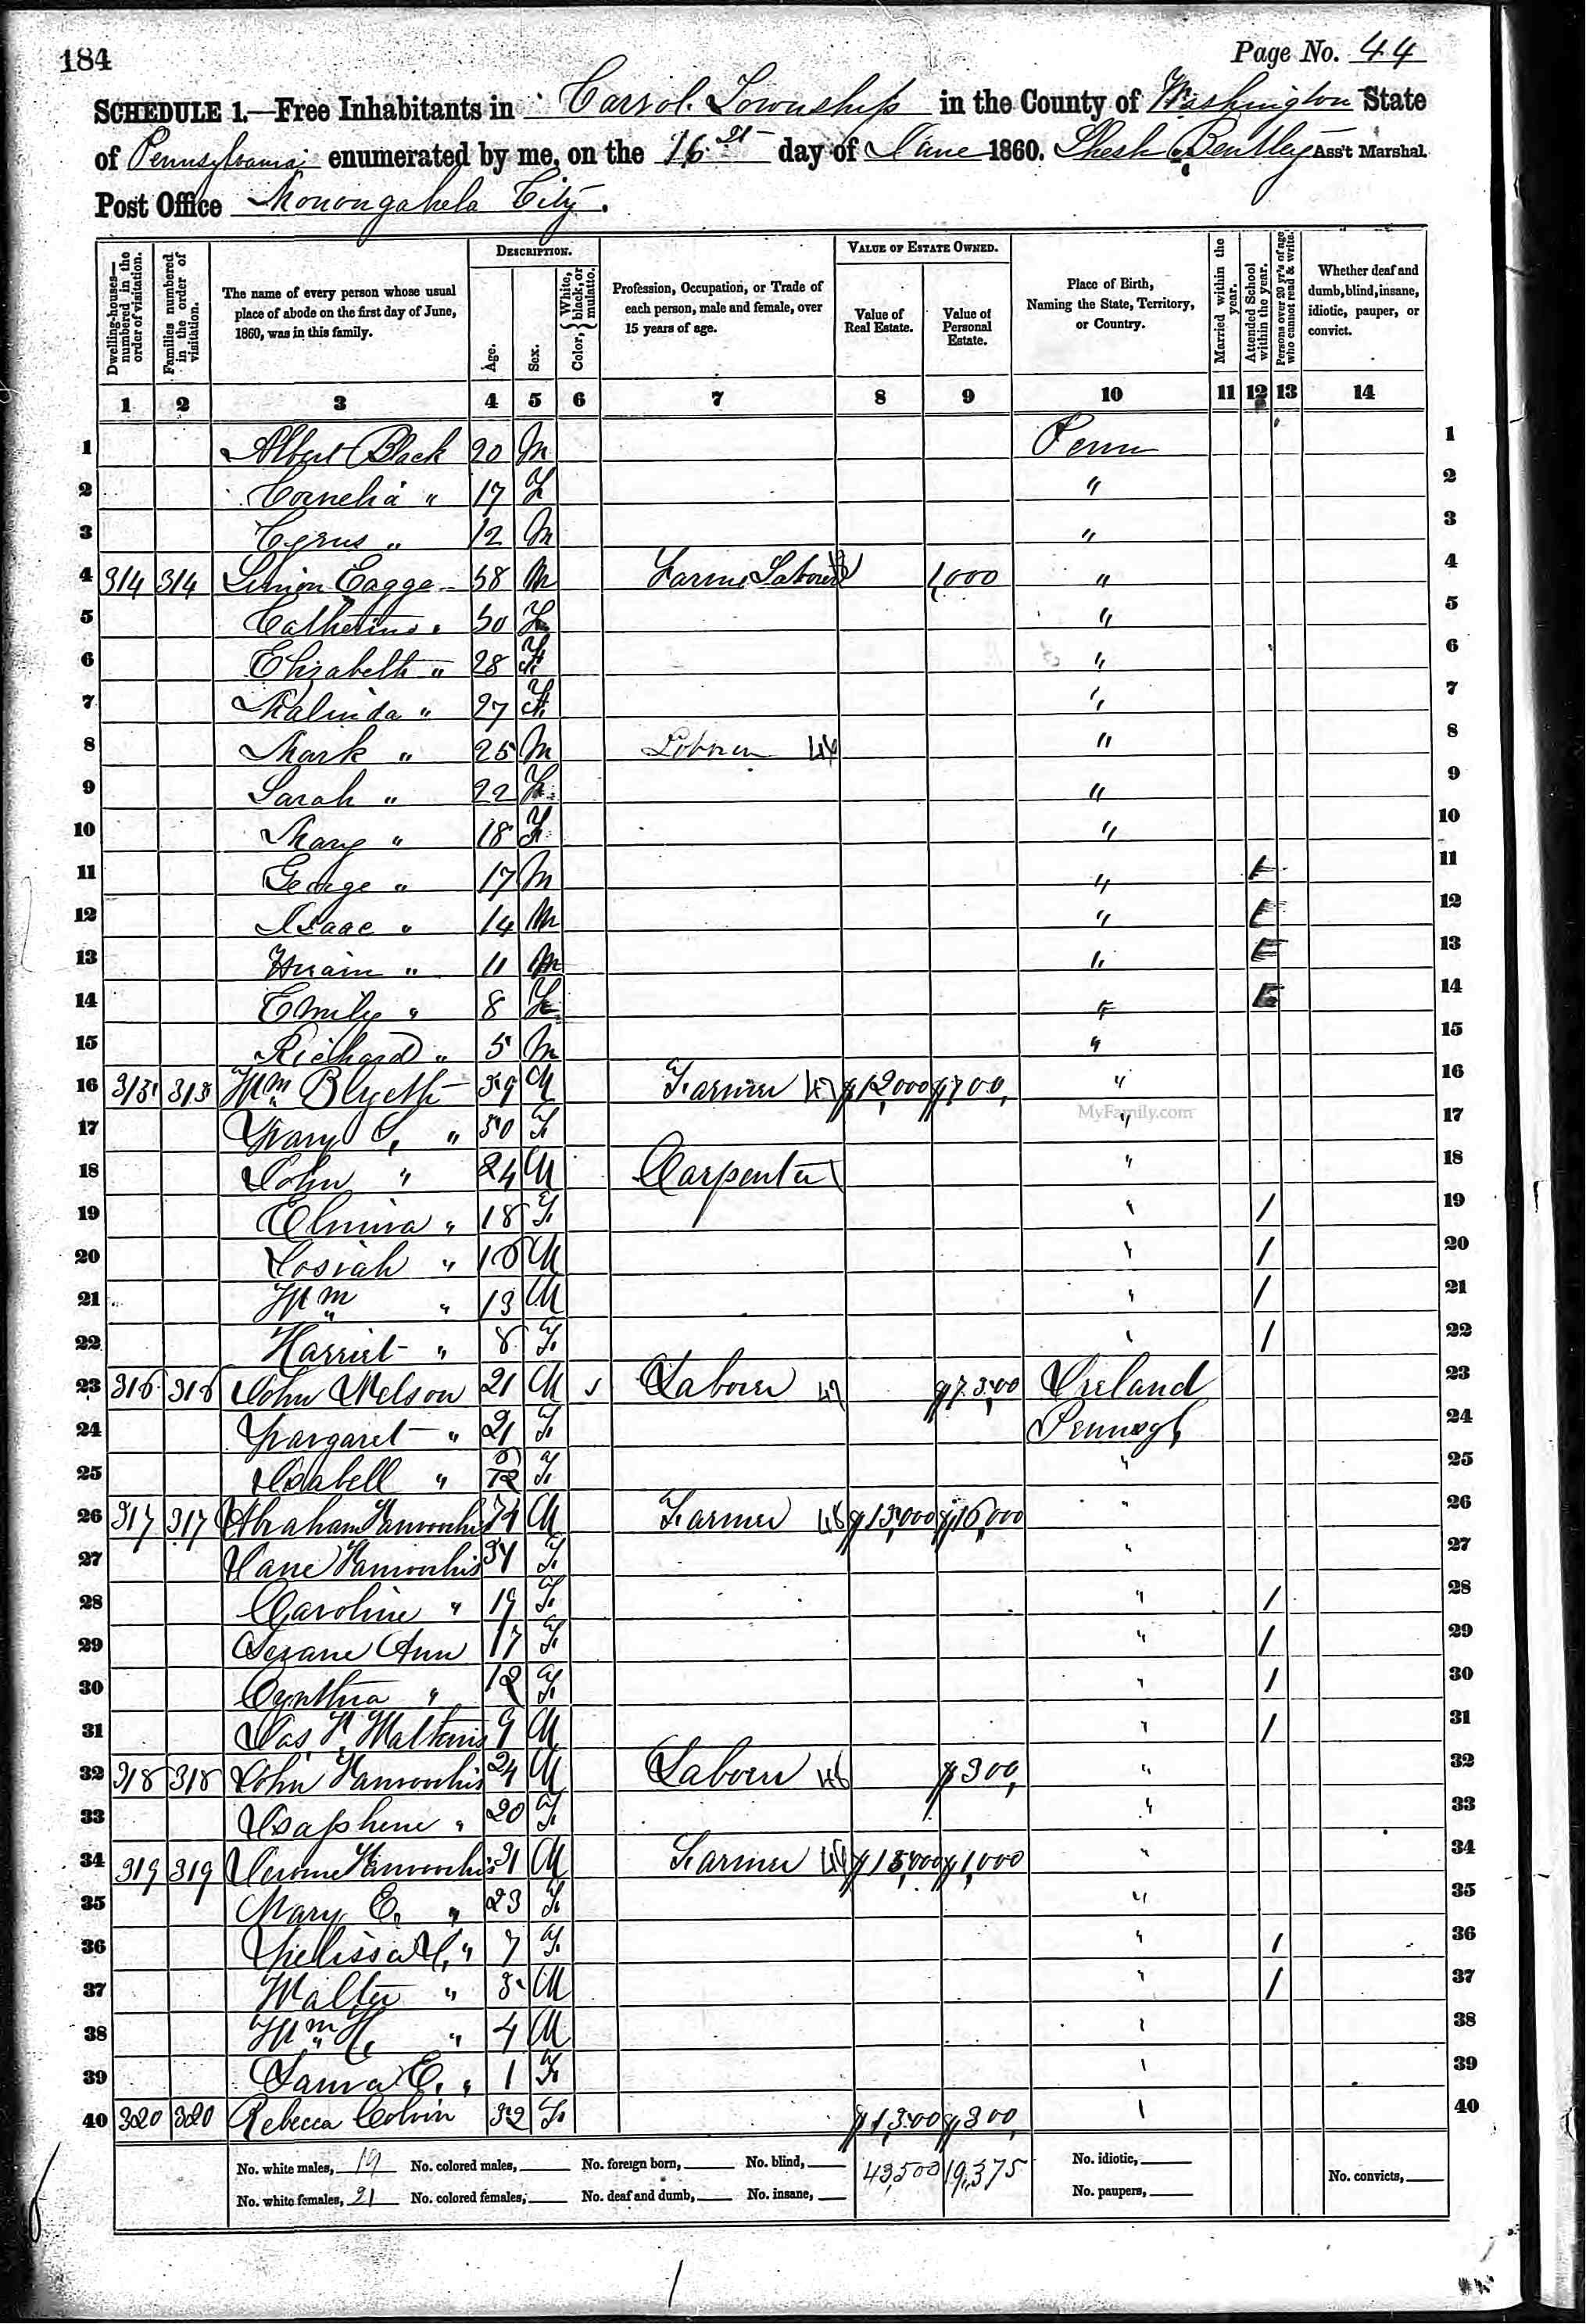 184
Page No. 44
SCHEDULE 1.—Free Inhabitants in Carrol Township in the County of Washington State
of Pennsylvania enumerated by me, on the 16 day of June 1860. Shesh Bentley Ass't Marshal.
Post Office Monongahela City.
Dwelling-houses—numbered in the order of visitation.
Families numbered in the order of visitation.
The name of every person whose usual place of abode on the first day of June, 1860, was in this family.
DESCRIPTION.
Age.
Sex.
Color, { White, black, or mulatto.
Profession, Occupation, or Trade of each person, male and female, over 15 years of age.
VALUE OF ESTATE OWNED.
Value of Real Estate.
Value of Personal Estate.
Place of Birth, Naming the State, Territory, or Country.
Married within the year.
Attended School within the year.
Persons over 20 yr's of age who cannot read & write.
Whether deaf and dumb, blind, insane, idiotic, pauper, or convict.
1 2 3 4 5 6 7 8 9 10 11 12 13 14
1 Albert Black 20 M Penn 1
2 Cornelia " 17 F " 2
3 Cyrus " 12 M " 3
4 314 314 Simon Eagye 58 M Farm Laborer 1,000 " 4
5 Catherine " 50 F " 5
6 Elizabeth " 28 F " 6
7 Malinda " 27 F " 7
8 Mark " 25 M Laborer " 8
9 Sarah " 22 F " 9
10 Mary " 18 F " 10
11 George " 17 M " 11
12 Isaac " 14 M " 12
13 Hiram " 11 M " 13
14 Emily " 8 F " 14
15 Richard " 5 M " 15
16 315 315 Wm Blyeth 59 M Farmer 47 $12,000 $700, " 16
MyFamily.com
17 Mary C, " 50 F. " 17
18 John " 24 M Carpenter " 18
19 Elmina " 18 F. " / 19
20 Josiah " 16 M " / 20
21 Wm " 13 M " / 21
22 Harriet " 8 F. " / 22
23 316 316 John Nelson 21 M Laborer Ireland 23
24 Margaret " 21 F. 24
25 Isabell " F. " 25
26 317 317 Abraham 74 M Farmer 48 $15,000 $16,000 " 26
27 Jane F. " 27
28 Caroline " 19 F. " / 28
29 Ann 17 F. " / 29
30 Cynthia " 12 F. " / 30
31 Jas 9 M " / 31
32 318 318 John 24 M Laborer 46 $300, " 32
33 Josaphene " 20 F. " 33
34 319 319 Jerome 31 M Farmer $15,000 $1,000 " 34
35 Mary E. " 23 F. " 35
36 Melissa " 7 F. " / 36
37 Walter " 5 M " / 37
38 Wm H. " 4 M " 38
39 Laura E. " 1 F. " 39
40 320 320 Rebecca Colvin 32 F. $1,500 $300, " 40
No. white males, 19 No. colored males, No. foreign born, No. blind, 43,500 19,375 No. idiotic, No. convicts,
No. white females, 21 No. colored females, No. deaf and dumb, No. insane, No. paupers,